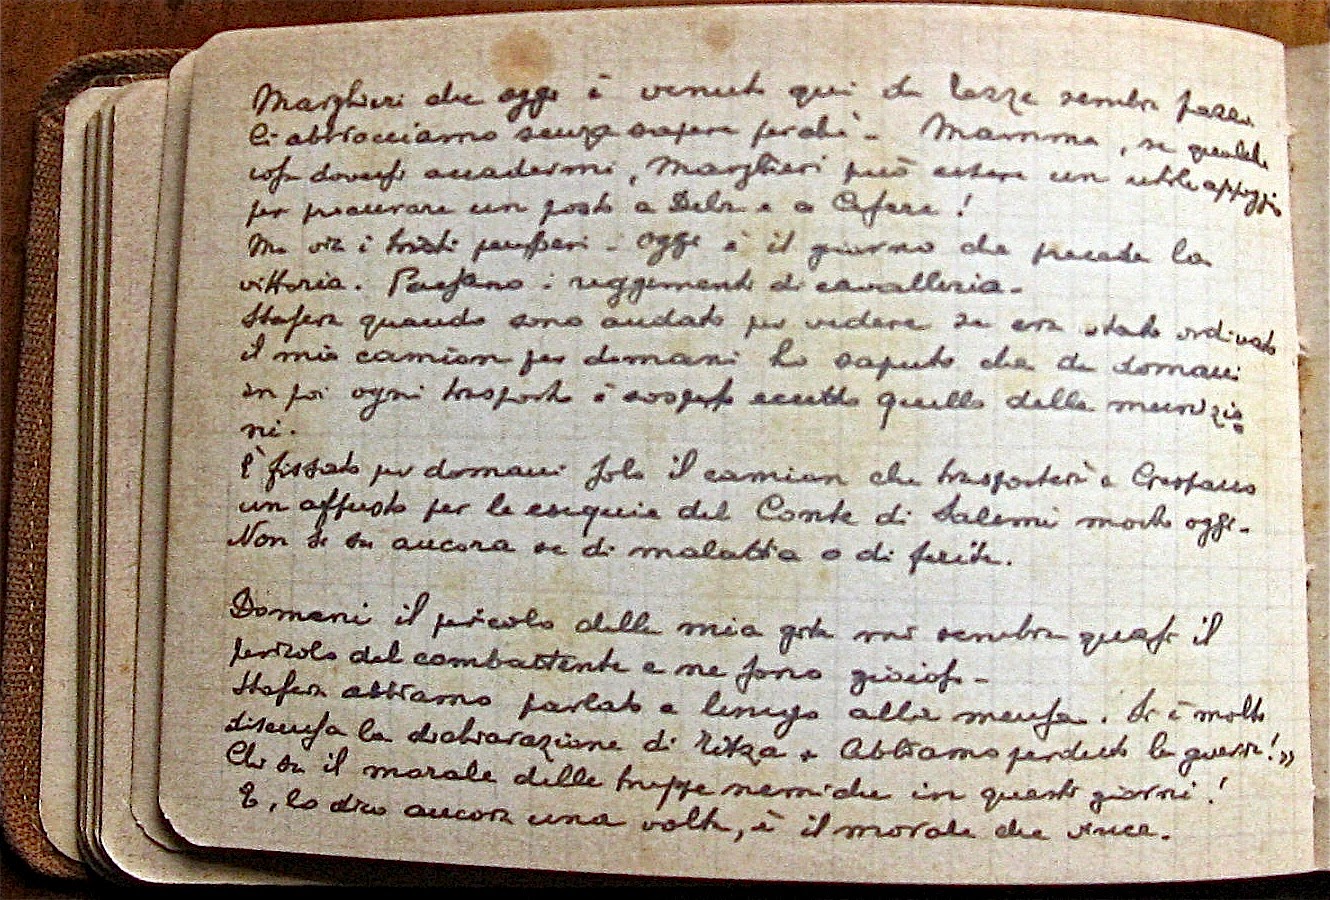 Margheri che oggi è venuto qui da Tezze sembra pazzo.
Ci abbracciamo senza sapere perchè - Mamma, se qualche
cosa dovesse accadermi, Margheri può essere un utile appoggio
per procurare un posto a Delo e a Cesare!
Ma via i tristi pensieri - Oggi è il giorno che precede la
vittoria. Passano i reggimenti di cavalleria -
Stasera quando sono andato per vedere se era stato ordinato
il mio camion per domani ho saputo che da domani
in poi ogni trasporto è sospeso eccetto quello delle munizio
ni.
È fissato per domani solo il camion che trasporterà a Crespano
un affusto per le esequie del Conte di Salemi morto oggi -
Non si sa ancora se di malattia o di ferite.
Domani il pericolo della mia gita mi sembra quasi il
pericolo del combattente e ne sono gioioso -
Stasera abbiamo parlato a lungo alla mensa. Si è molto
discussa la dichiarazione di Titza « Abbiamo perduto la guerra!»
Chi sa il morale delle truppe nemiche in questi giorni!
E, lo dico ancora una volta, è il morale che vince.